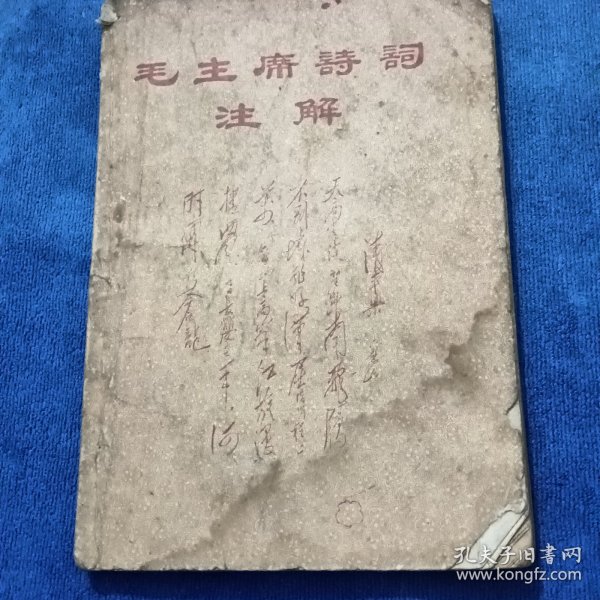 毛主席詩詞
注解
清平樂 六盘山
天高雲淡 望断南飛雁
不到長城非好漢 屈指行程二
萬 六盘山上高峰 红旗漫
捲西風 今日長纓在手 何
時縛住蒼龍
孔夫子旧書网
www.kongfz.com